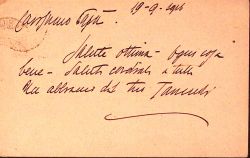 19-9-916
Carissimo Papà
Salute ottima - Ogni cosa
bene - Saluti cordiali a tutti
Un abbraccio dal tuo